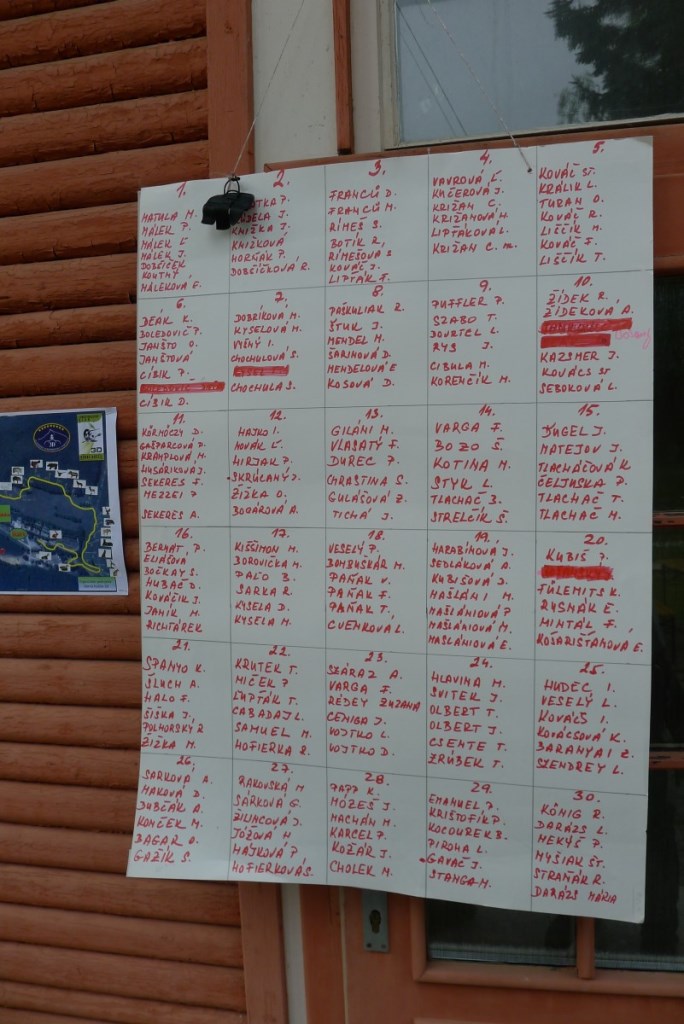 1.
MATULA M.
MÁLEK P.
MÁLEK Ľ
MÁLEK J.
DOBČÍČEK
KOUTNÝ
MÁLEKOVÁ E.
2.
J.
KNIŽKA J
KNIŽKOVÁ
HORŇÁK P.
DOBČÍČKOVÁ R.
3.
FRANCŮ D.
FRANCŮ M.
RÍMEŠ S.
BOTÍK R.
RÍMEŠOVÁ S
KOVÁČ J.
LIPTÁK F.
4.
VAVROVÁ Ľ
KUČEROVÁ J.
KRIŽAN C.
KRIŽANOVÁ H.
LIPTÁKOVÁ L.
KRIŽAN C. M.
5.
KOVÁČ ST.
KRÁLIK L.
TURAN O.
KOVÁČ R.
LIŠČÍK M.
KOVÁČ F.
LIŠČÍK T.
6.
DEÁK K.
BOLEDOVIČ P.
JANŠTO O.
JANŠTOVÁ
CÍBIK P.
CÍBIK D.
7.
DOBRÍKOVÁ M.
KYSELOVÁ M.
VYŠNÝ I.
CHOCHULOVÁ S.
CHOCHULA S.
8.
PAŠKULIAK R.
ŠTUK J.
MENDEL M.
ŠARINOVÁ D.
MENDELOVÁ E
KOSOVÁ D.
9.
PUFFLER P.
SZABO T.
DOVRTEL L.
RYS J
CIBULA M.
KORENČÍK M.
10.
ŽÍDEK R.
ŽÍDEKOVÁ A.
KAZSMER J.
KOVÁCS ST
SEBOKOVÁ L.
11.
KÖRMÖCZY D.
GAŠPARCOVÁ D.
KRAMPLOVÁ M.
HUSÁRIKOVÁ J.
SEKERES F.
MEZZEI P
SEKERES A.
12.
HAJKO I.
NOVÁK Ľ
HIRJAK P.
SKRÚCANÝ J.
ŽIŽKA O.
BODÁROVÁ A.
13.
GILÁNI M.
VLASATÝ F.
DUREC P.
CHRASTINA S.
GULÁŠOVÁ Z.
TICHÁ J.
14.
VARGA F.
BOZO Š.
KOTINA M.
STYK L.
TLACHAČ B.
STRELČÍK Š.
15.
DUGEL J.
MATEJOV J.
TLACHÁČOVÁ K
ČELINSKA P.
TLACHAČ T.
TLACHAČ M.
16.
BERNÁT P.
ELIÁŠOVÁ
BOČKAY S.
HUBAČ D.
KOVÁČIK J.
JANÍK M.
RICHTÁREK
17.
KIŠŠIMON M.
BOROVIČKA M.
PAĽO B.
SARKA R.
KYSELA D.
KYSELA M.
18.
VESELÝ P.
BOMBUŠKÁR M.
PAŇÁK V.
PAŇÁK F.
PAŇÁK T.
CVENROVÁ L.
19.
HARABINOVÁ J.
SEDLÁKOVÁ A.
KUBIŠOVÁ D.
MAŠLÁNI M.
MAŠLÁNIOVÁ P
MAŠLÁNIOVÁ M.
MAŠLÁNIOVÁ E.
20.
KUBIŠ P.
FÜLEMITS K.
RUSNÁK E.
MINTÁL F.
KOŠARIŠŤANOVÁ E.
21.
SPANYO K.
ŠLUCH A.
HALO F.
ŠIŠKA J.
POLHORSKÝ R
ŽIŽKA M.
22.
KRUTEK T.
MIČEK P
ĽUPTÁK T.
CABADAJ L.
SAMUEL M.
HOFIERKA R.
23.
SZÁRAZ A.
VARGA F.
RÉDEY ZUZANA
CENIGA J.
VOJTKO L.
VOJTKO D.
24.
HLAVINA M.
SVITEK J.
OLBERT T.
OLBERT J.
CSENTE T.
ZRÚBEK T.
25.
HUDEC I.
VESELÝ L.
KOVÁCŠ I.
KOVÁCSOVÁ K.
BARANYAI Z.
SZENDREY L.
26.
SARKOVÁ A.
MAKOVÁ D.
DUBČÁK A.
KONČEK M.
BAGAR O.
GAŽÍK S.
27.
RAKOVSKÁ M
SÁRKOVÁ G.
ŽILINCOVÁ J.
JÓŽOVÁ H
HÁJKOVÁ P
HOFIERKOVÁ S.
28.
PAPP K.
MÓZEŠ J.
MACHÁN M.
KARCEL P.
KOŽÁR J.
CHOLEK M.
29.
EMANUEL P.
KRIŠTOFÍK P.
KOCOUREK B.
PIROHA L.
GAVAČ J.
STANGA M.
30.
KÖNIG R.
DARÁZS L.
MEKYŠ P.
MYŠIAK ŠT.
STRAŇÁK R.
DARÁZS MÁRIA